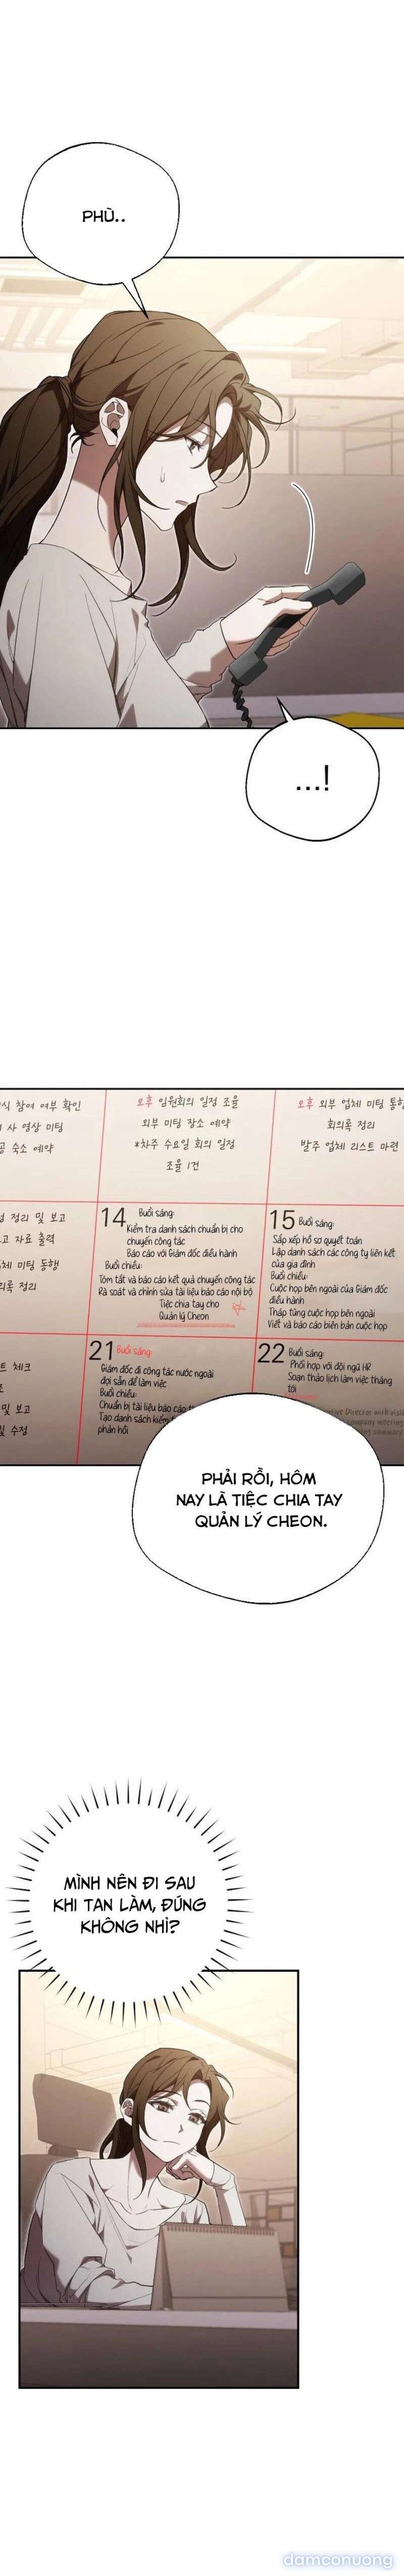 PHÙ..
...!
오후 임원회의 일정 조율
외부 미팅 장소 예약
*차주 수요일 회의 일정
조율 1건
오후 외부 업체 미팅 통행
회의록 정리
발주 업체 리스트 마련
식 참여 여부 확인
사 영상 미팅
숙소 예약
정리 및 보고
자료 출력
미팅 동행
록 정리
14 Buổi sáng:
Kiểm tra danh sách chuẩn bị cho
chuyến công tác
Báo cáo với Giám đốc điều hành
Buổi chiều:
Tóm tắt và báo cáo kết quả chuyến công tác
Rà soát và chỉnh sửa tài liệu báo cáo nội bộ
Tiệc chia tay cho
Quản lý Cheon
15 Buổi sáng:
Sắp xếp hồ sơ quyết toán
Lập danh sách các công ty liên kết
của gia đình
Buổi chiều:
Cuộc họp bên ngoài của Giám đốc
điều hành
Tháp tùng cuộc họp bên ngoài
Viết và báo cáo biên bản cuộc họp
체크
및 보고
및 수정
21 Buổi sáng:
Giám đốc đi công tác nước ngoài
đợi sẵn để làm việc
Buổi chiều:
Chuẩn bị tài liệu báo cáo
Tạo danh sách kiểm
phản hồi
22 Buổi sáng:
Phối hợp với đội ngũ HR
Soạn thảo lịch làm việc tháng
tới
Director with
company
summary
PHẢI RỒI, HÔM
NAY LÀ TIỆC CHIA TAY
QUẢN LÝ CHEON.
MÌNH NÊN ĐI SAU
KHI TAN LÀM, ĐÚNG
KHÔNG NHỈ?
damconuong